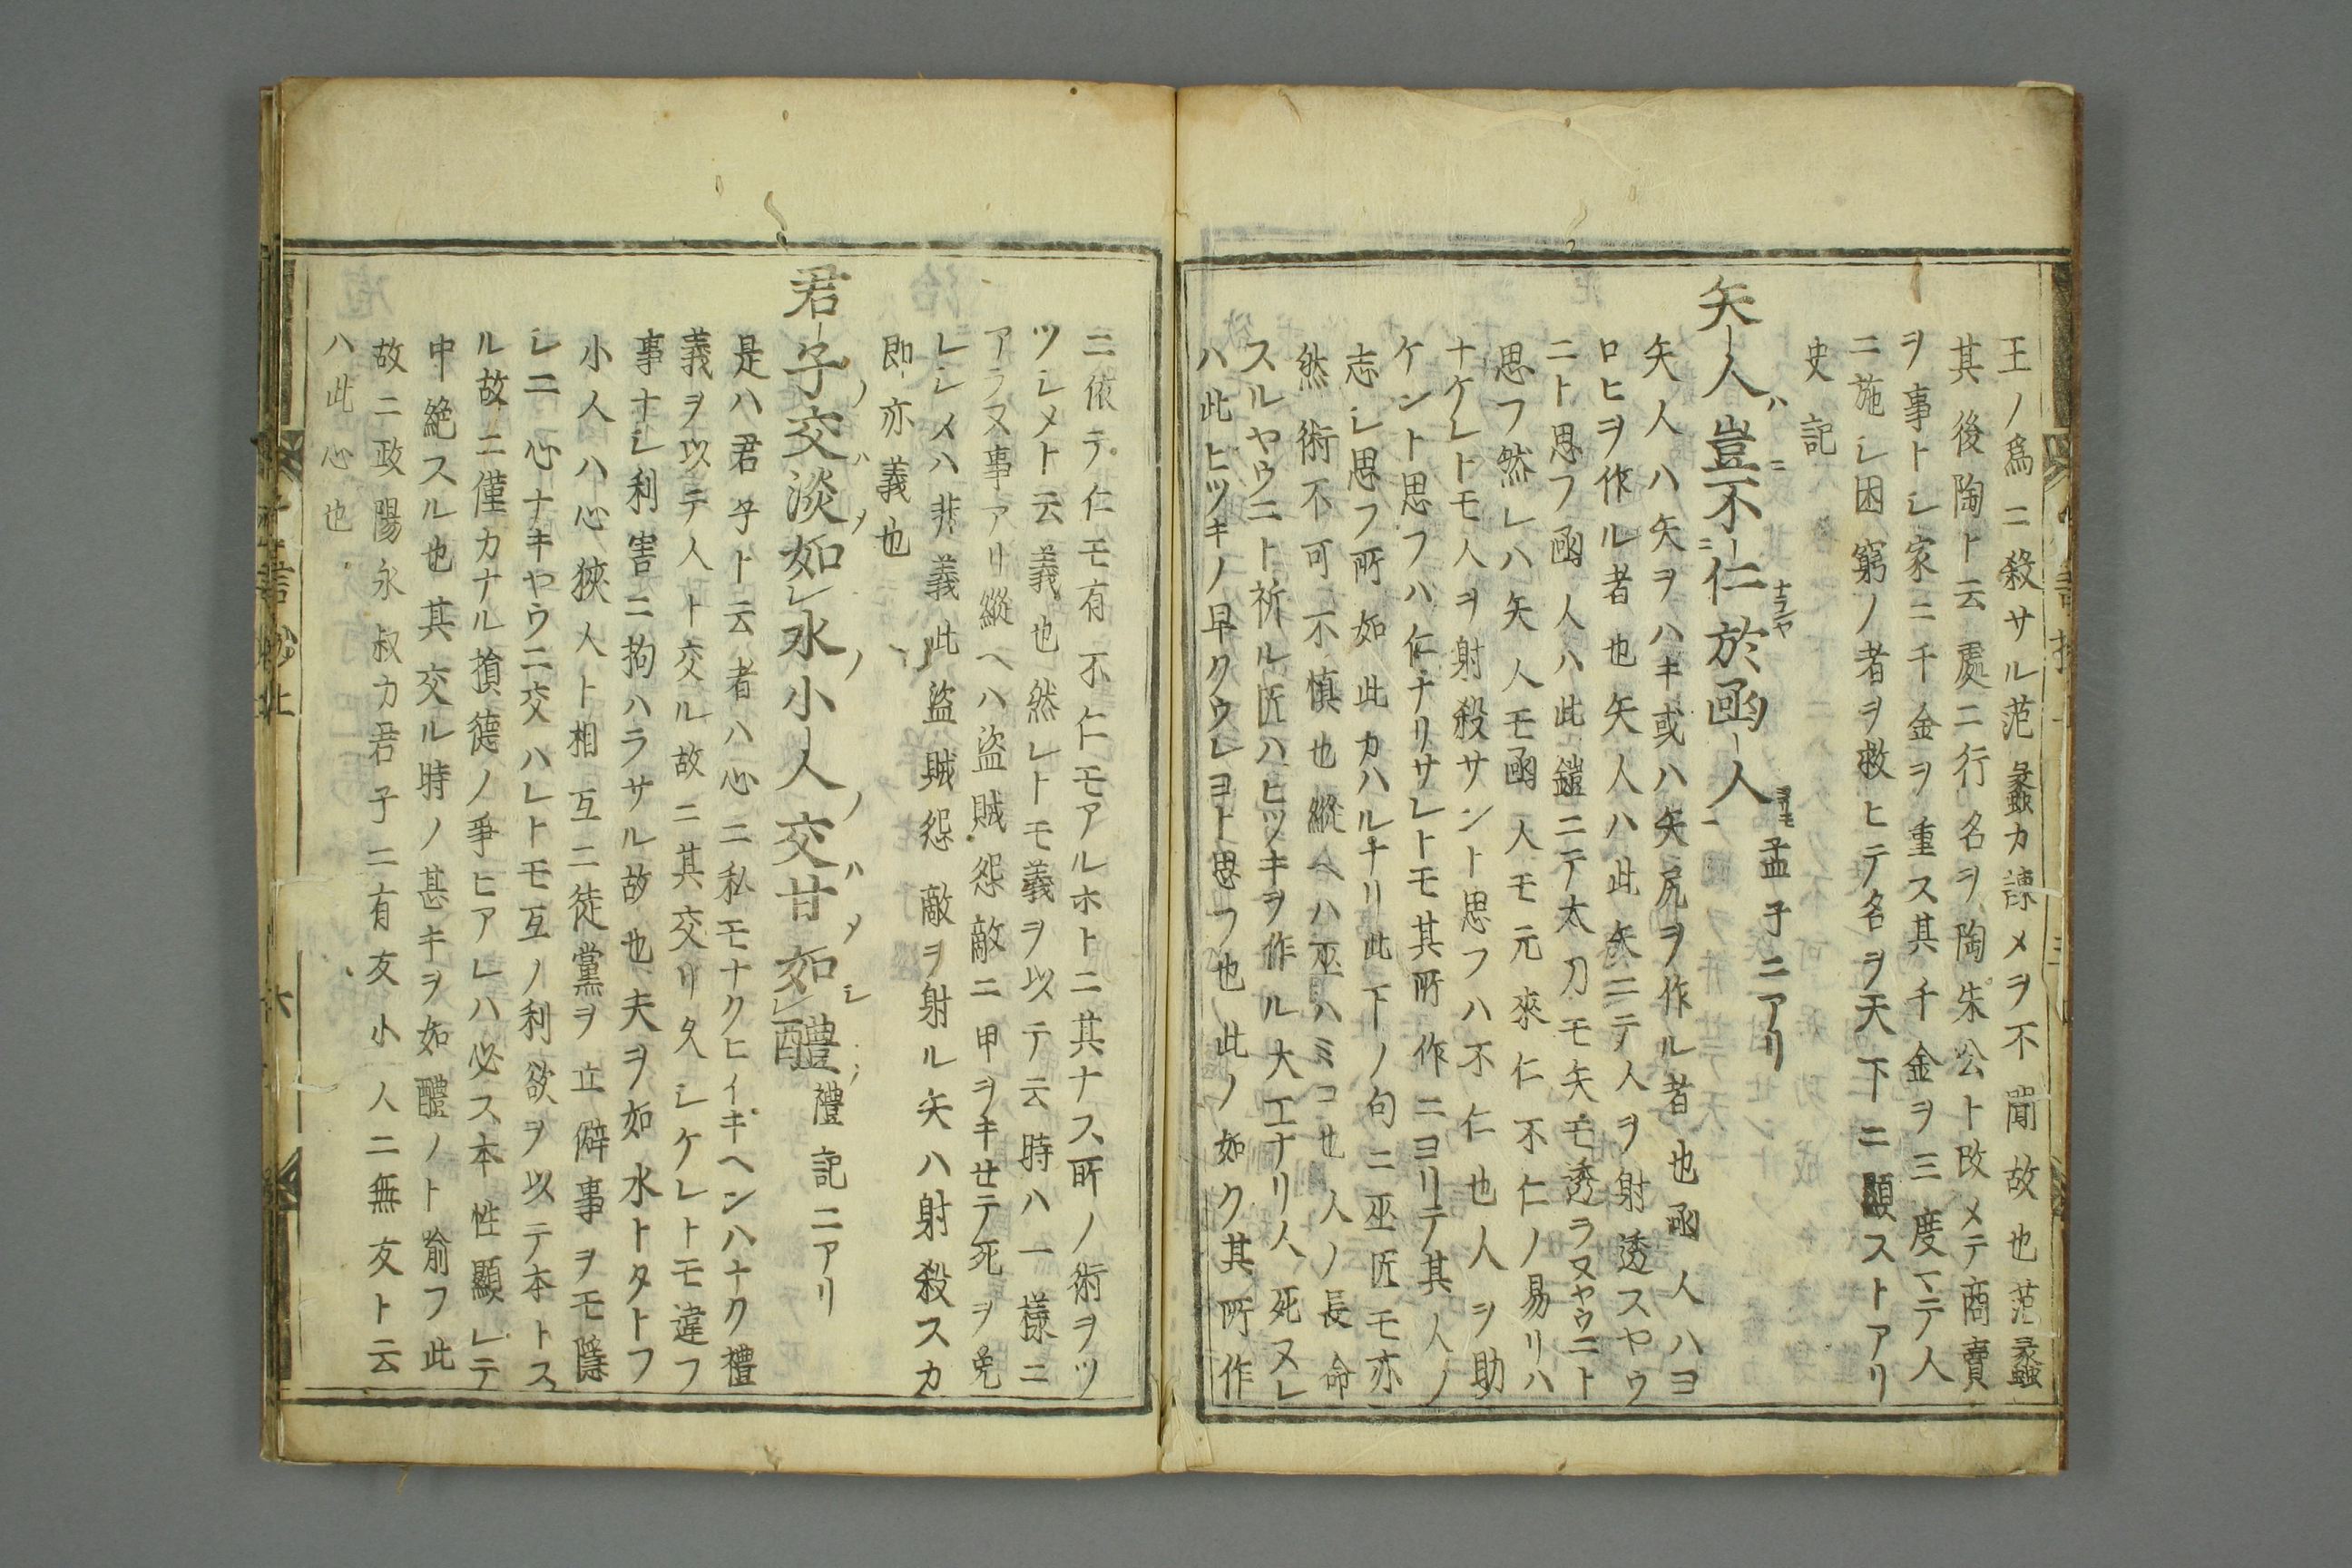 王ノ爲ニ殺サル范蠡カ諌メヲ不聞故也范蠡
其後陶ト云處ニ行名ヲ陶朱公ト改メテ商賣
ヲ事トシ家ニ千金ヲ重ス其千金ヲ三度マテ人
ニ施シ困窮ノ者ヲ救ヒテ名ヲ天下ニ顕ストアリ
史記
矢人ハ豈ニ不仁ニナランヤ於函人ヨリモ 孟子ニアリ
矢人ハ矢ヲハキ或ハ矢尻ヲ作ル者也函人ハヨ
ロヒヲ作ル者也矢人ハ此矢ニテ人ヲ射透スヤウ
ニト思フ函人ハ此鎧ニテ太刀モ矢モ透ラヌヤウニト
思フ然レハ矢人モ函人モ元來仁不仁ノ易リハ
ナケレトモ人ヲ射殺サント思フハ不仁也人ヲ助
ケント思フハ仁ナリサレトモ其所作ニヨリテ其人ノ
志シ思フ所如此カハルナリ此下ノ句ニ巫匠モ亦
然術不可不慎也縦ヘハ巫ハミコ也人ノ長命
スルヤウニト祈ル匠ハヒツキヲ作ル大工ナリ人死ヌレ
ハ此ヒツキノ早クウレヨト思フ也此ノ如ク其所作
ニ依テ仁モ有不仁モアルホトニ其ナス所ノ術ヲツ
ツシメト云義也然レトモ義ヲ以テ云時ハ一樣ニ
アラヌ事アリ縦ヘハ盗賊怨敵ニ甲ヲキセテ死ヲ免
レシメハ非義此盗賊怨敵ヲ射ル矢ハ射殺スカ
即亦義也
君子ノ交ハ淡ソ如シ水ノ小人ノ交ハ甘ソ如シ醴ノ 禮記ニアリ
是ハ君子ト云者ハ心ニ私モナクヒイキヘンハナク禮
義ヲ以テ人ト交ル故ニ其交リ久シケレトモ違フ
事ナシ利害ニ拘ハラサル故也夫ヲ如水トタトフ
小人ハ心狹人ト相互ニ徒黨ヲ立僻事ヲモ隱
シ二心ナキヤウニ交ハレトモ互ノ利欲ヲ以テ本トス
ル故ニ僅カナル損徳ノ爭ヒアレハ必ス本性顯レテ
中絶スル也其交ル時ノ甚キヲ如醴ノト喩フ此
故ニ政陽永叔カ君子ニ有友小人ニ無友ト云
ハ此心也